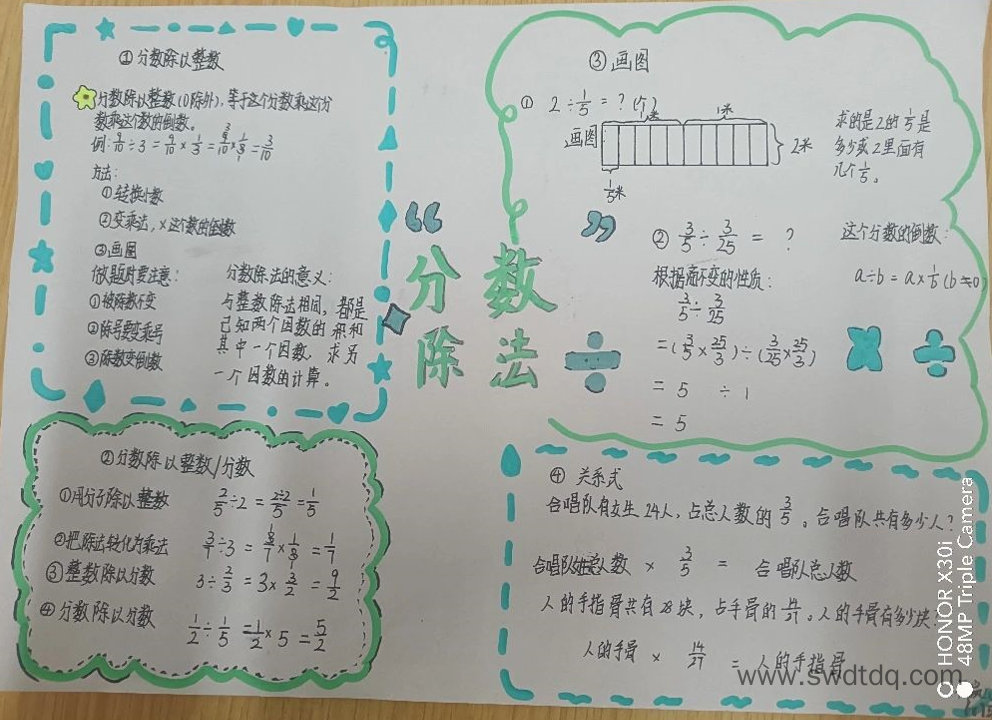 ①分数除以整数
分数除以整数(0除外),等于这个分数乘这个分
数乘这个数的倒数。
例:9/10÷3=9/10×1/3=9/10×1/3=3/10
方法:
①转换小数
②变乘法,×这个数的倒数
③画图
做题时要注意:
①被除数不变
②除号要变乘号
③除数变倒数
分数除法的意义:
与整数除法相同,都是
已知两个因数的积和
其中一个因数,求另
一个因数的计算。
②分数除以整数/分数
①用分子除以整数 2/5÷2=2÷2/5=1/5
②把除法转化为乘法 3/7÷3=3/7×1/3=1/7
③整数除以分数 3÷2/3=3×3/2=9/2
④分数除以分数 1/2÷1/5=1/2×5=5/2
“分数
除法”
③画图
① 2÷1/5=?(个)
1米 1米
画图 2米
1/5米
求的是2的1/5是
多少或2里面有
几个1/5。
② 3/5÷3/25=?
根据商不变的性质:
3/5÷3/25
=(3/5×25/3)÷(3/25×25/3)
=5÷1
=5
这个分数的倒数:
a÷b=a×1/b(b≠0)
④关系式
合唱队有女生24人,占总人数的3/5。合唱队共有多少人?
×3/5=合唱队总人数
人的手指骨共有28块,占手骨的14/27。人的手骨有多少块?
人的手骨×14/27=人的手指骨
www.swdtdq.com
HONOR X30i
48MP Triple Camera